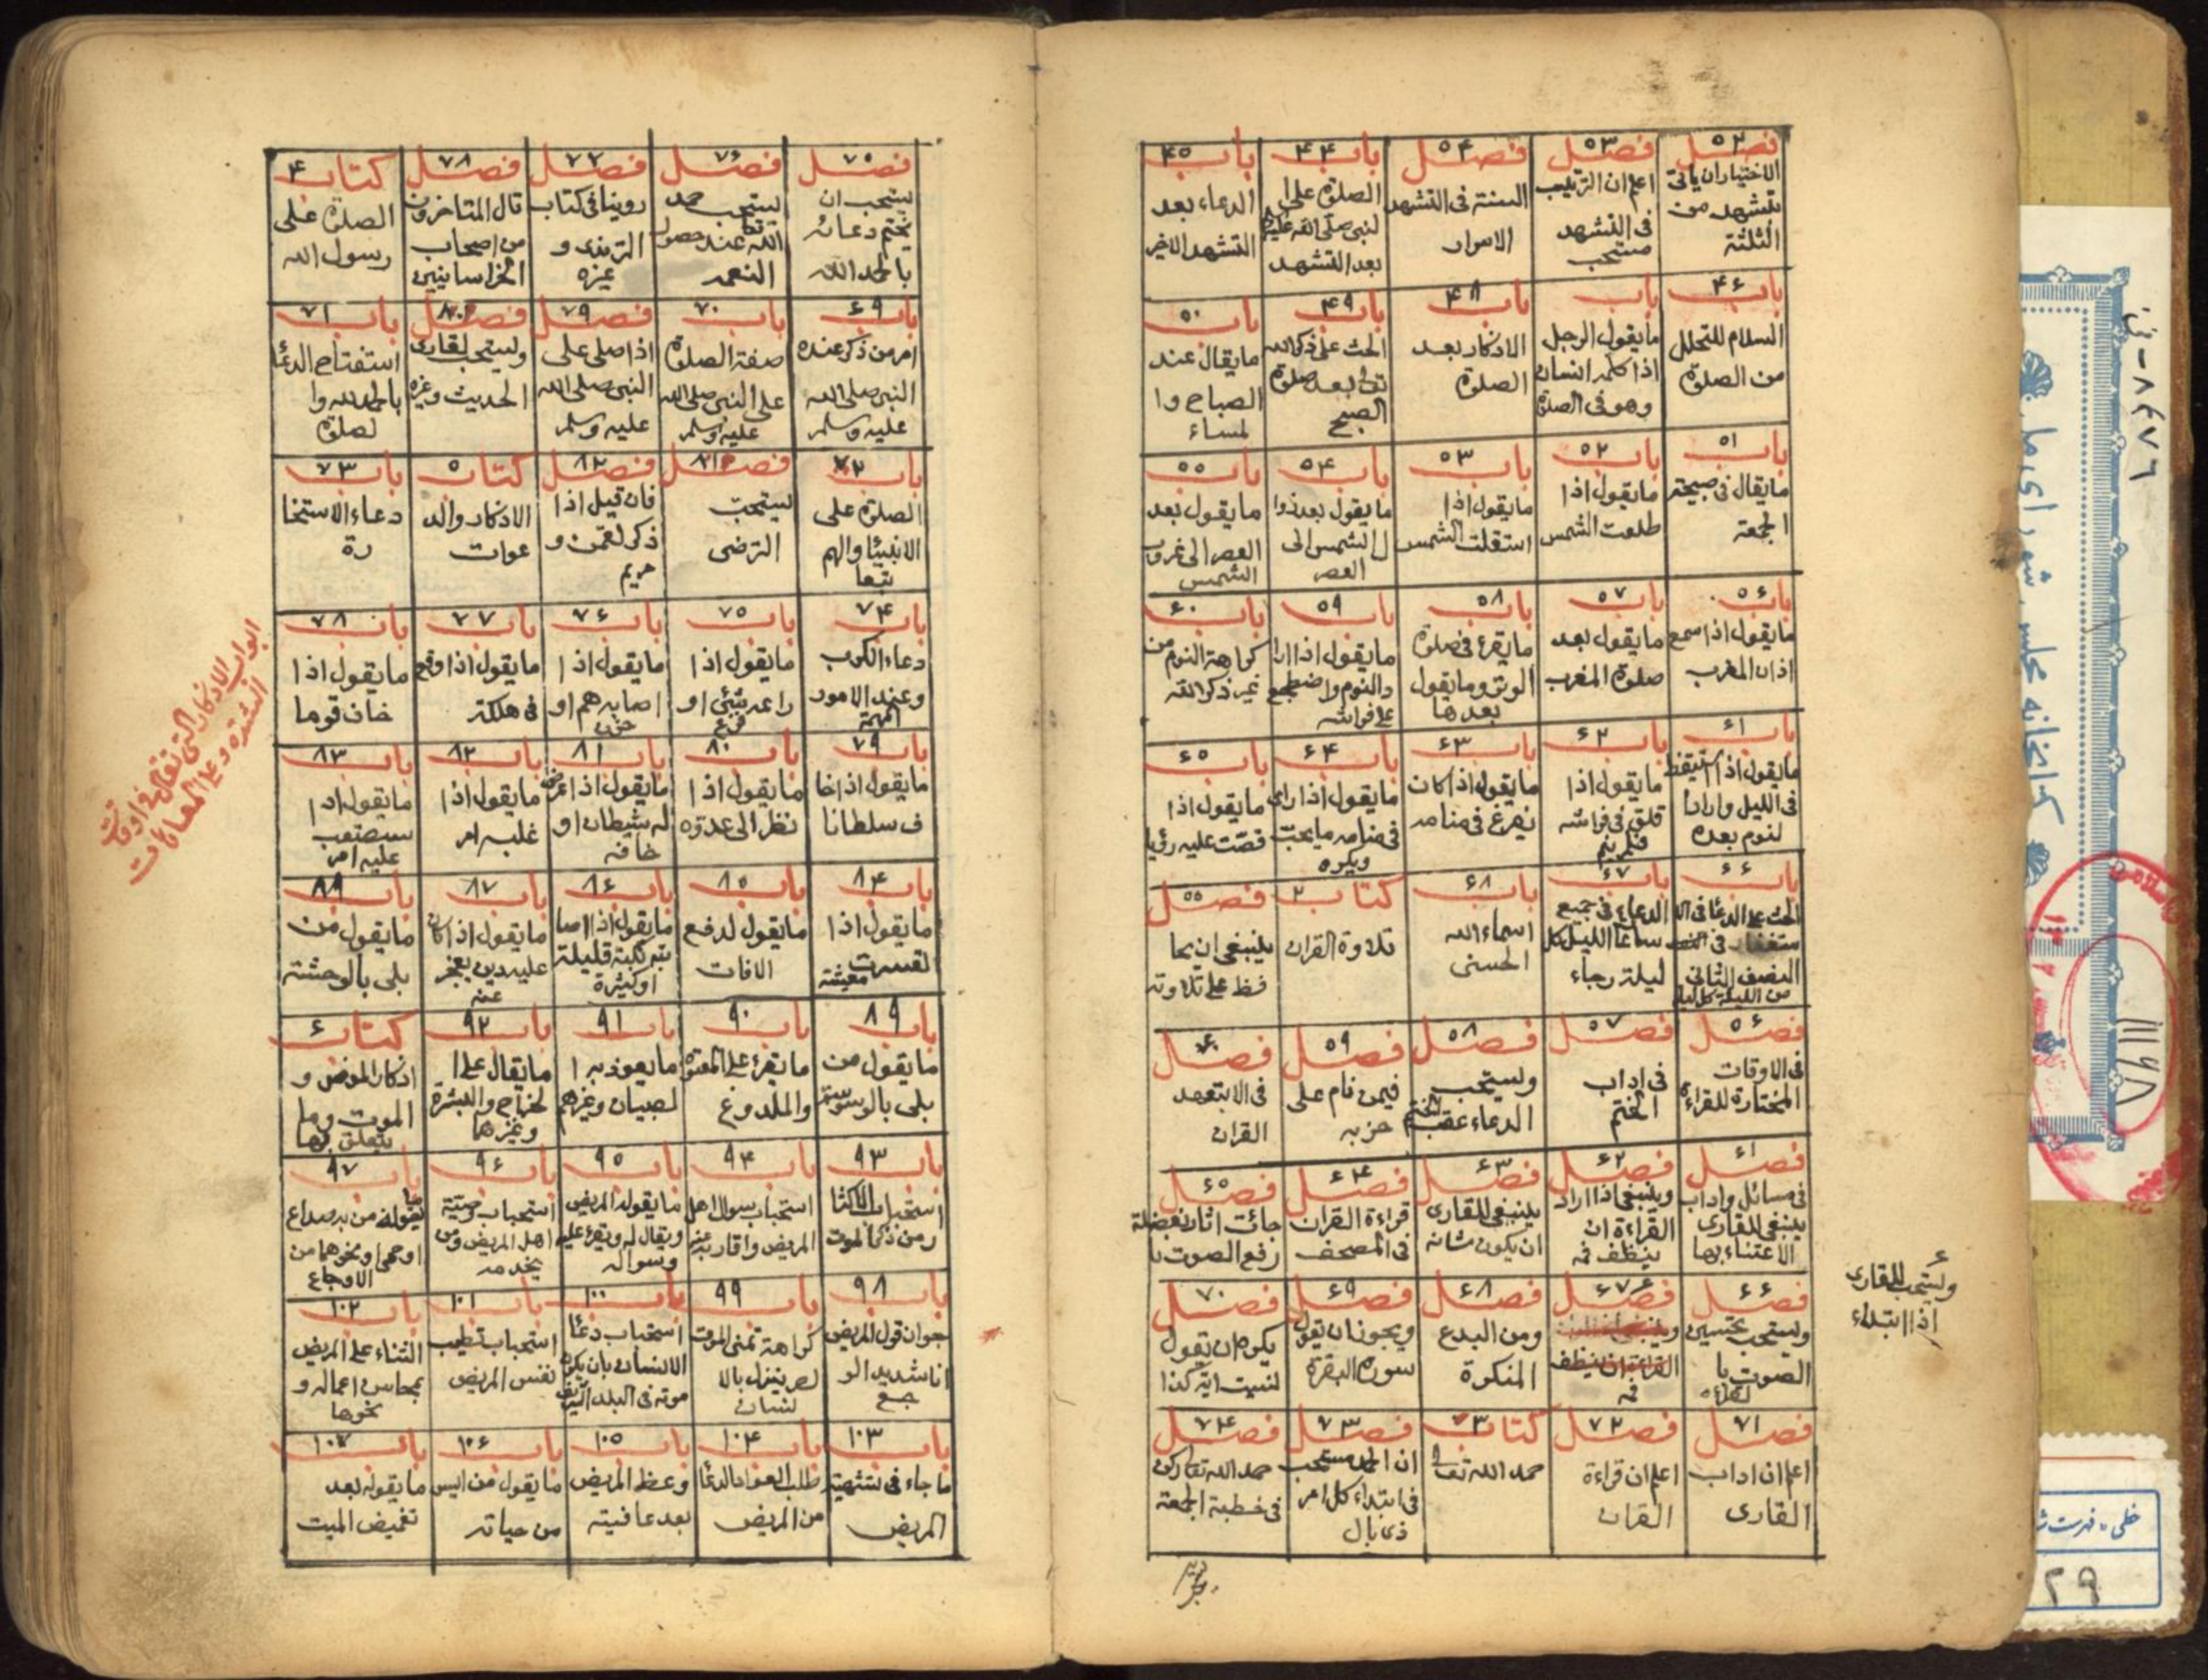 فصل ۵۲
الاختياران ياتى
بتشهد من
الثلثة
فصل ۵۳
اعلم ان الترتيب
فى التشهد
مستحب
فصل ۵۴
السنة فى التشهد
الاسرار
باب ۴۴
الصلوة على ا
لنبى صلى الله عليه
بعد التشهد
باب ۴۵
الدعاء بعد
التشهد الاخير
باب ۴۶
السلام للتحلل
من الصلوة
باب
مايقول الرجل
اذا كلمه انسان
وهو فى الصلوة
باب ۴۸
الاذكار بعد
الصلوة
باب ۴۹
الحث على ذكر الله
تعالى بعد صلوة
الصبح
باب ۵۰
مايقال عند
الصباح وا
لمساء
باب ۵۱
مايقال فى صبيحة
الجمعة
باب ۵۲
مايقول اذا
طلعت الشمس
باب ۵۳
مايقول اذا
استقلت الشمس
باب ۵۴
مايقول بعد زوا
ل الشمس الى
العصر
باب ۵۵
مايقول بعد
العصر الى غروب
الشمس
باب ۵۶
مايقول اذا سمع
اذان المغرب
باب ۵۷
مايقول بعد
صلوة المغرب
باب ۵۸
مايقرء فى صلوة
الوتر ومايقول
بعدها
باب ۵۹
مايقول اذا ارا
د النوم واضطجع
على فراشه
باب ۶۰
كراهة النوم من
غير ذكر الله
باب ۶۱
مايقول اذا استيقظ
فى الليل واراد ا
لنوم بعده
باب ۶۲
مايقول اذا
قلق فى فراشه
فلم ينم
باب ۶۳
مايقول اذا كان
يفزع فى منامه
باب ۶۴
مايقول اذا راى
فى منامه مايحب
ويكره
باب ۶۵
مايقول اذا
قصّت عليه رؤيا
باب ۶۶
الحث على الدعا فى الا
ستغفار فى
النصف الثانى
من الليلة كل ليلة
باب ۶۷
الدعاء فى جميع
ساعات الليل كل
ليلة رجاء
باب ۶۸
اسماء الله
الحسنى
كتاب ۲
تلاوة القران
فصل ۵۵
ينبغى ان يحا
فظ على تلاوته
فصل ۵۶
فى الاوقات
المختارة للقراءة
فصل ۵۷
فى اداب
الختم
فصل ۵۸
ويستحب
الدعاء عقب الختم
فصل ۵۹
فيمن نام على
حزبه
فصل ۶۰
فى الا بتعهد
القران
فصل ۶۱
فى مسائل واداب
ينبغى للقارى
الاعتناء بها
فصل ۶۲
وينبغى اذا اراد
القراءة ان
ينظف فمه
فصل ۶۳
ينبغى للقارى
ان يكون شانه
فصل ۶۴
قراءة القران
فى المصحف
فصل ۶۵
جائت اثار بفضيلة
رفع الصوت با
فصل ۶۶
ويستحب تحسين
الصوت با
لقراءة
فصل ۶۷
القراءة ان ينظف
فمه
فصل ۶۸
ومن البدع
المنكرة
فصل ۶۹
ويجوز ان يقول
سورة البقرة
فصل ۷۰
يكره ان يقول
نسيت اية كذا
ويستحب للقارى
اذا ابتداء
فصل ۷۱
اعلم ان اداب
القارى
فصل ۷۲
اعلم ان قراءة
القران
كتاب ۳
حمد الله تعالى
فصل ۷۳
ان الحمد مستحب
فى ابتداء كل امر
ذى بال
فصل ۷۴
حمد الله تعالى ركن
فى خطبة الجمعة
فصل ۷۵
يستحب ان
يختم دعائه
بالحمد لله
فصل ۷۶
يستحب حمد
الله تعالى عند حصول
النعمه
فصل ۷۷
روينا فى كتاب
الترمذى و
غيره
فصل ۷۸
قال المتاخرون
من اصحاب
الخراسانيين
كتاب ۴
الصلوة على
رسول الله
باب ۶۹
امر من ذكر عنده
النبى صلى الله
عليه وسلم
باب ۷۰
صفة الصلوة
على النبى صلى الله
عليه وسلم
فصل ۷۹
اذا صلى على
النبى صلى الله
عليه وسلم
فصل ۸۰
ويستحب لقارى
الحديث وغيره
باب ۷۱
استفتاح الدعا
بالحمد لله وا
لصلوة
باب ۷۲
الصلوة على
الانبياء والهم
تبعا
فصل ۸۱
يستحب
الترضى
فصل ۸۲
فان قيل اذا
ذكر لقمن و
مريم
كتاب ۵
الاذكار والد
عوات
باب ۷۳
دعاء الاستخا
رة
باب ۷۴
دعاء الكرب
وعند الامور
المهمة
باب ۷۵
مايقول اذا
راعه شئ او
فزع
باب ۷۶
مايقول اذا
اصابه هم او
حزن
باب ۷۷
مايقول اذا وقع
فى هلكة
باب ۷۸
مايقول اذا
خاف قوما
ابواب الاذكار التى تقال فى اوقات
الشدة وعلى العاهات
باب ۷۹
مايقول اذا خا
ف سلطانا
باب ۸۰
مايقول اذا
نظر الى عدوّه
باب ۸۱
مايقول اذا عرض
له شيطان او
خافه
باب ۸۲
مايقول اذا
غلبه امر
باب ۸۳
مايقول اذا
ستصعب
عليه امر
باب ۸۴
مايقول اذا
تعسرت معيشته
باب ۸۵
مايقول لدفع
الافات
باب ۸۶
مايقول اذا اصا
بته نكبة قليلة
او كثيرة
باب ۸۷
مايقول اذا كان
عليه دين يعجز
عنه
باب ۸۸
مايقول من
بلى بالوحشة
باب ۸۹
مايقول من
بلى بالوسوسة
باب ۹۰
مايقرء على المعتوه
والملدوغ
باب ۹۱
مايعوذ به ا
لصبيان وغيرهم
باب ۹۲
مايقال على ا
لخراج والبثرة
وغيرها
كتاب ۶
اذكار المرض و
الموت وما
يتعلق بها
باب ۹۳
استحباب الاكثا
ر من ذكر الموت
باب ۹۴
استحباب سوال اهل
المريض واقاربه عنه
باب ۹۵
مايقوله المريض
ويقال له ويقرء عليه
وسواله
باب ۹۶
استحباب وصية
اهل المريض ومن
يخدمه
باب ۹۷
ما يقوله من به صداع
او حمى او نحوهما من
الاوجاع
باب ۹۸
جواز قول المريض
انا شديد الو
جع
باب ۹۹
كراهة تمنى الموت
لضر ينزل بالا
نسان
باب ۱۰۰
استحباب دعا
الانسان بان يكون
موته فى البلد الشريف
باب ۱۰۱
استحباب تطيب
نفس المريض
باب ۱۰۲
الثناء على المريض
بمحاسن اعماله و
نحوها
باب ۱۰۳
ماجاء فى تشهية
المريض
باب ۱۰۴
طلب العواد الدعا
من المريض
باب ۱۰۵
وعظ المريض
بعد عافيته
باب ۱۰۶
مايقول من ايس
من حياته
باب ۱۰۷
مايقوله بعد
تغميض الميت
كتابخانه مجلس شوراى ملى
۸۴۷۶ - ف
۱۱۱۶۸
خطى - فهرست ش
۲۹